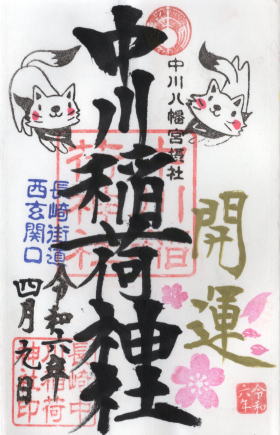 中川八幡宮摂社
中川稲荷神社
開運
長崎街道
西玄関口
令和六年
四月九日
長崎中
川稲荷
神社印
令和
六年